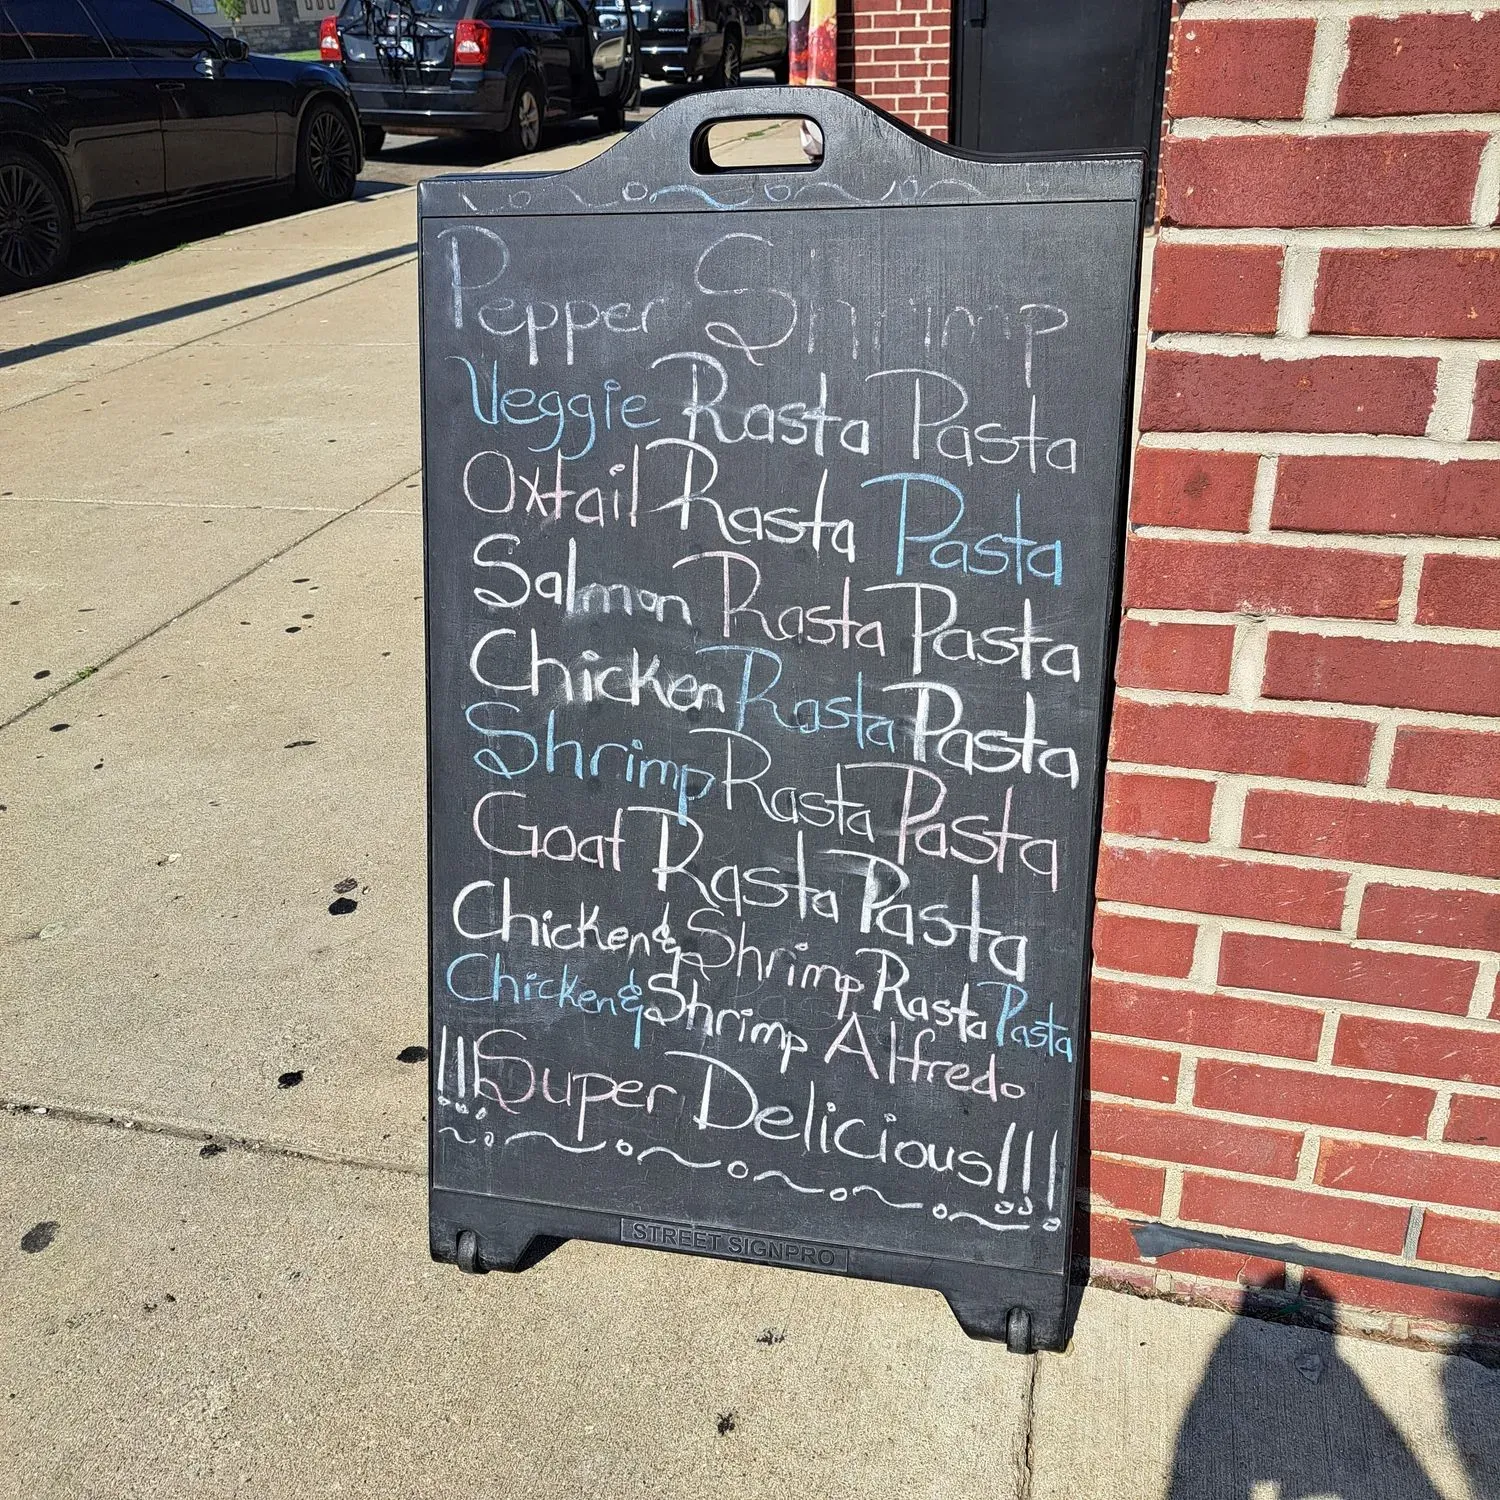 Pepper Shrimp
Veggie Rasta Pasta
Oxtail Rasta Pasta
Salmon Rasta Pasta
Chicken Rasta Pasta
Shrimp Rasta Pasta
Goat Rasta Pasta
Chicken & Shrimp Rasta Pasta
Chicken & Shrimp Alfredo
!!! Super Delicious!!!
STREET SIGNPRO